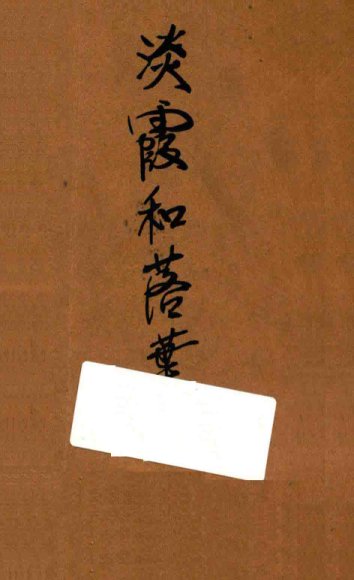 淡霞和落葉